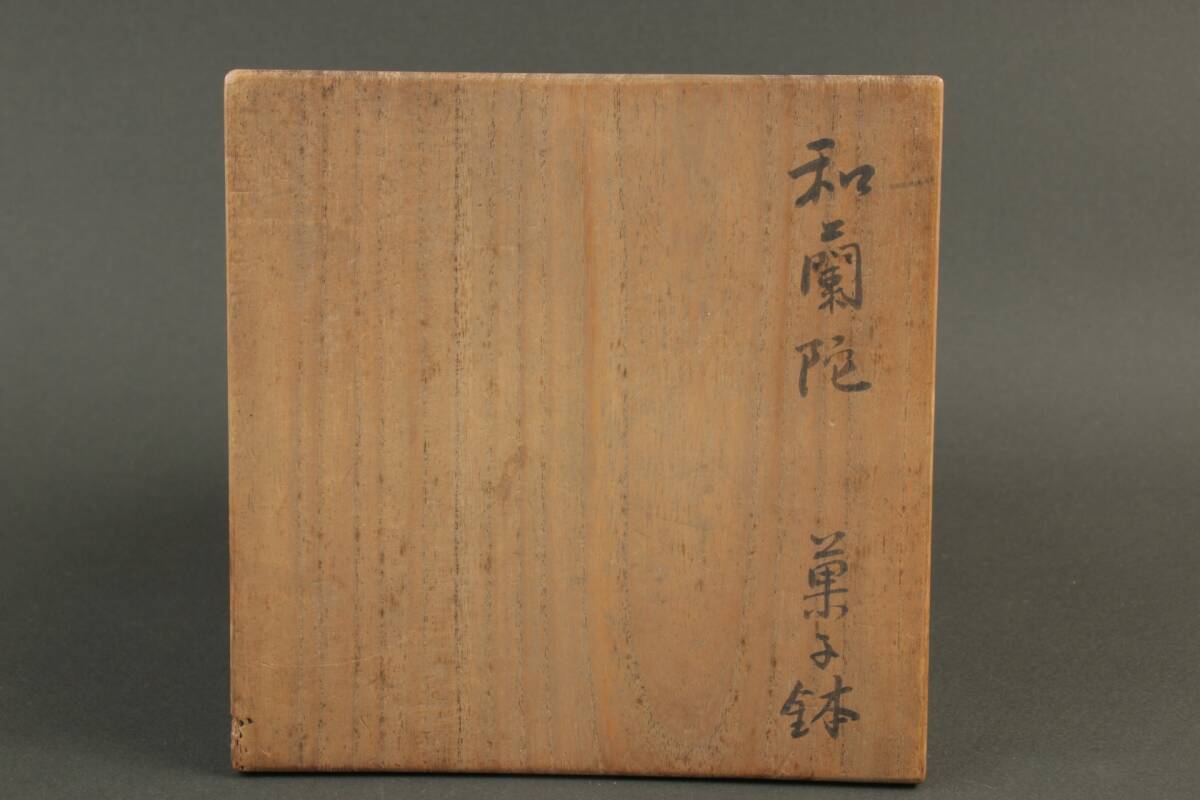 和蘭陀 菓子鉢